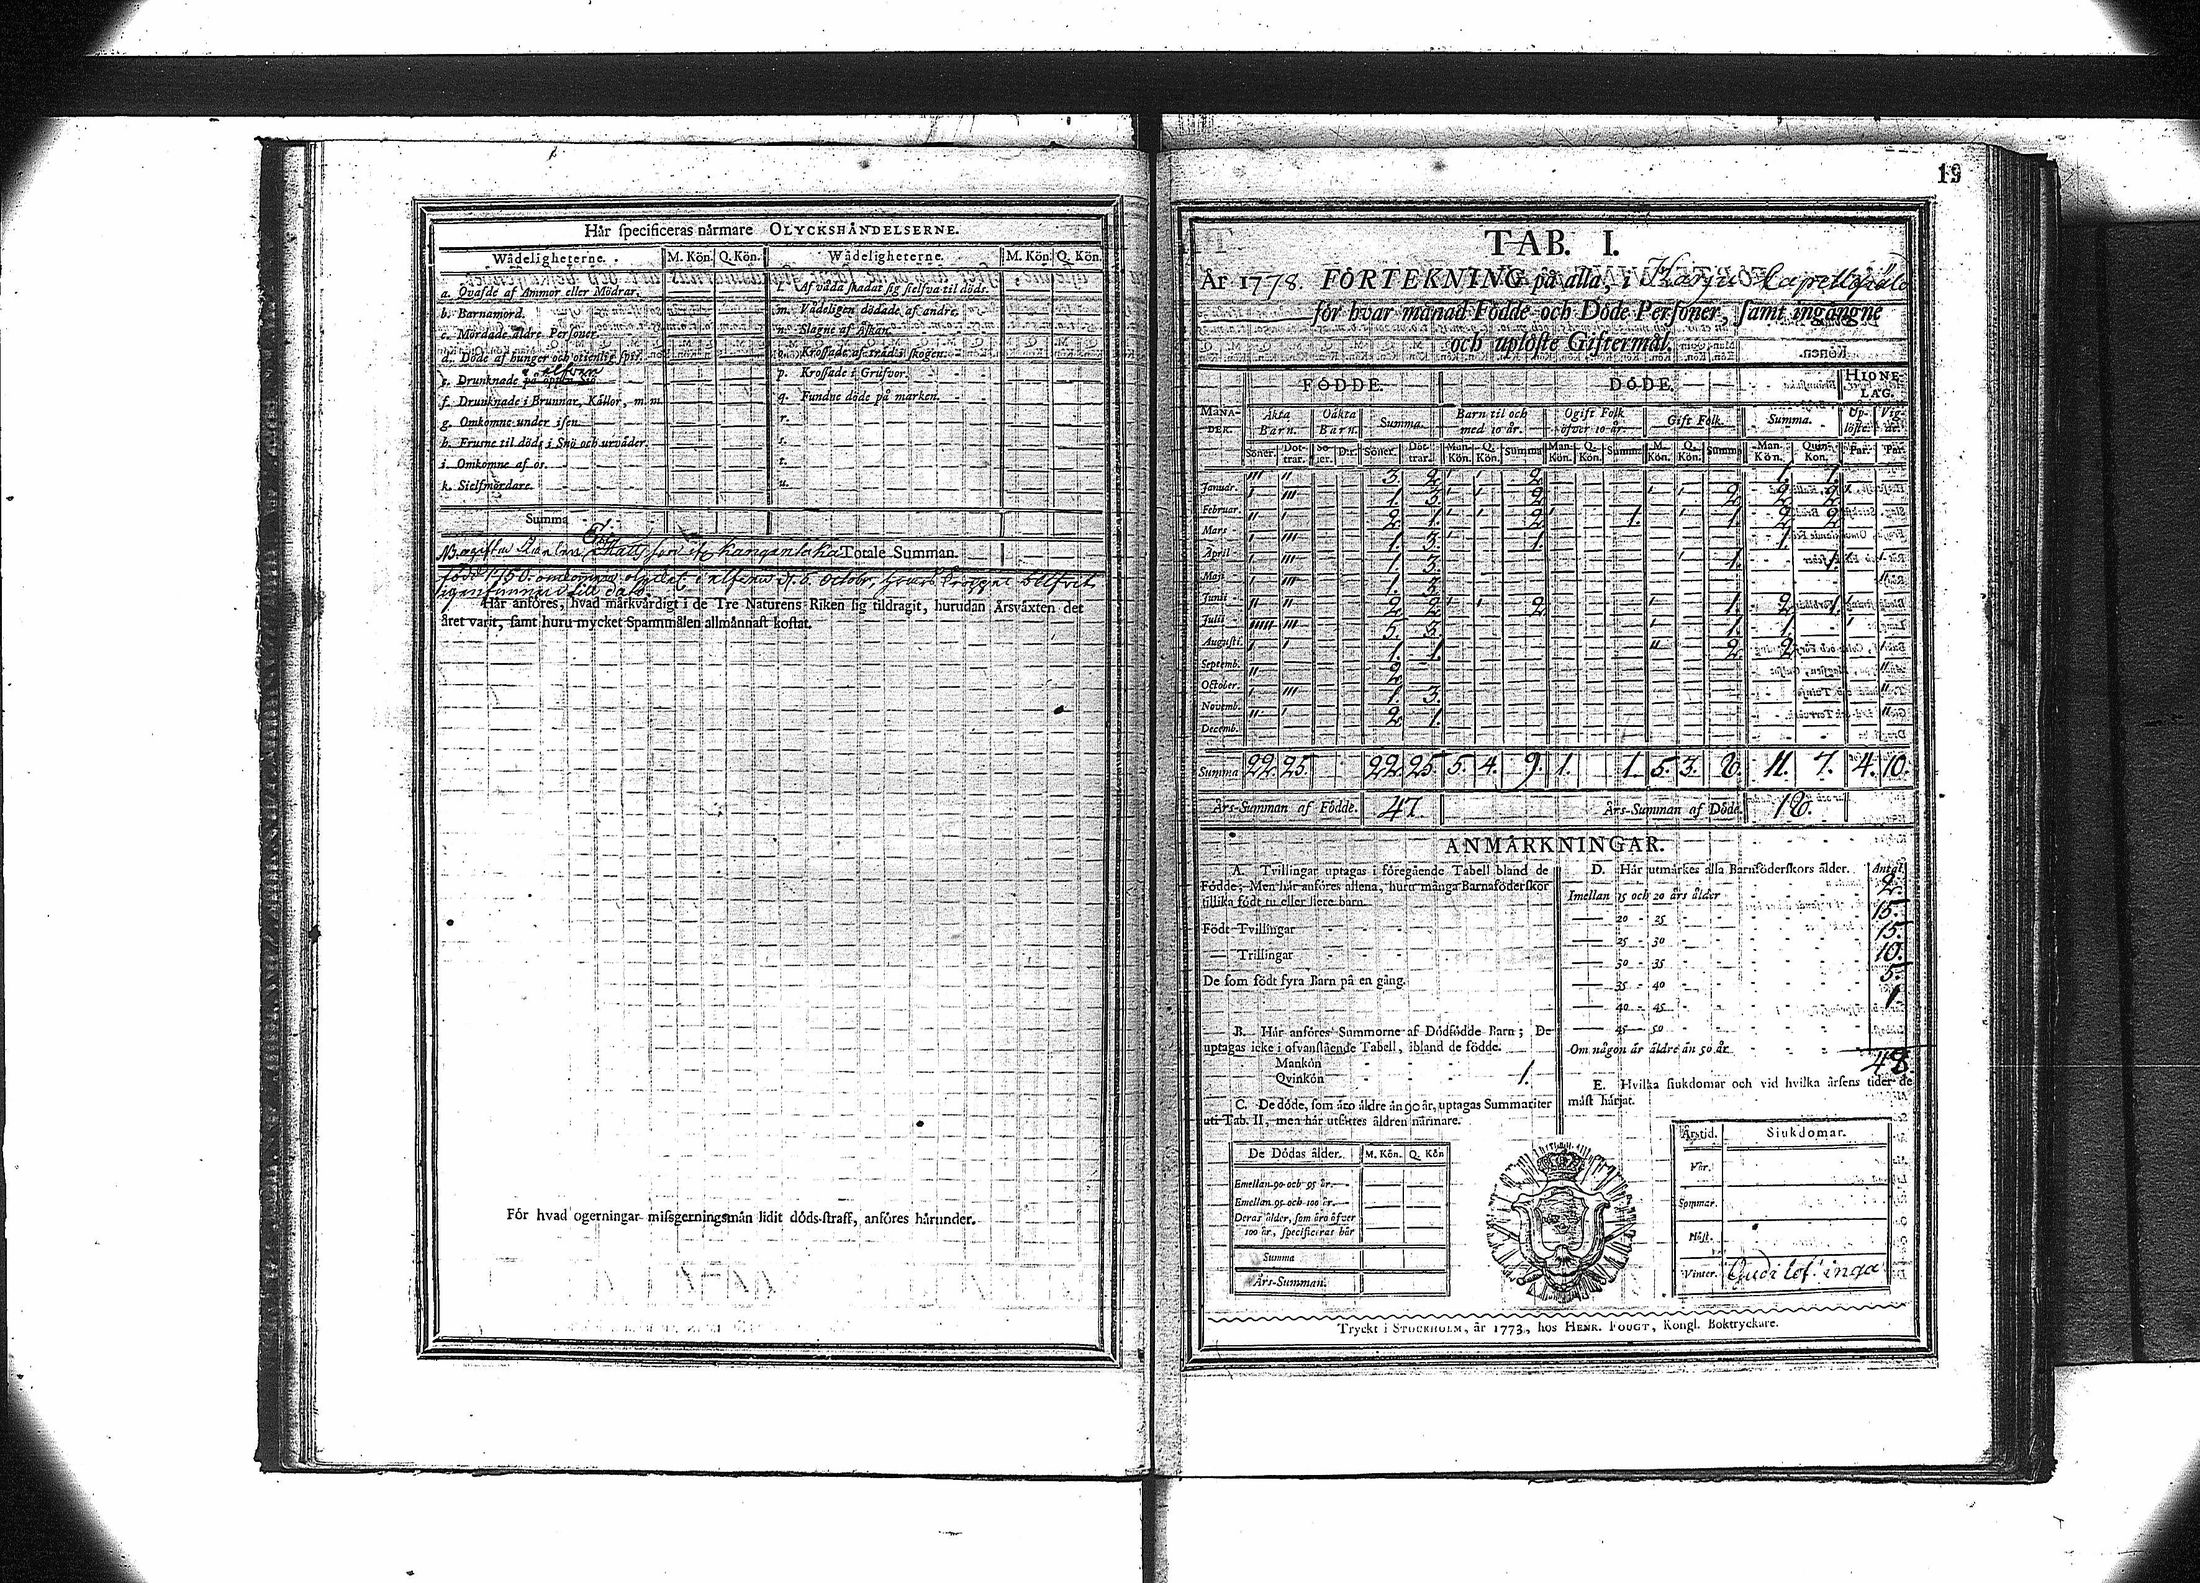 Här specificeras närmare OLYCKSHÄNDELSERNE.
Wådeligheterne. M. Kön. Q. Kön. Wådeligheterne. M. Kön. Q. Kön.
a. Qvafde af Ammor eller Mödrar. l. Af våda skadat sig sielfva til döds.
b. Barnamord. m. Vådeligen dödade af andre.
c. Mördade äldre Personer. n. Slagne af Åskan.
d. Döde af hunger och otienlig spis. o. Krossade af träd i skogen.
i elfven
e. Drunknade på öppen Siö p. Krossade i Grufvor.
f. Drunknade i Brunnar, Källor, m. m. q. Fundne döde på marken.
g. Omkomne under isen. r.
h. Frusne til döds i Snö och urväder. s.
i. Omkomne af os. t.
k. Sielfmördare. u.
Summa
Totale Summan.
Här anföres, hvad märkvärdigt i de Tre Naturens Riken sig tildragit, hurudan Årsväxten det
året varit, samt huru mycket Spannmålen allmännast kostat.
För hvad ogerningar missgerningsmän lidit döds-straff, anföres härunder.
19
TAB. I.
År 1778. FÖRTEKNING på alla, i Karju Capellgiäld
för hvar månad Födde och Döde Personer, samt ingångne
och uplöste Giftermål.
FÖDDE. DÖDE. HIONE-LAG.
MÅNADER. Äkta Barn. Oäkta Barn. Summa. Barn til och med 10 år. Ogift Folk öfver 10 år. Gift Folk. Summa. Up-löste. Vig-de.
Söner. Döttrar. Söner. Dr. Söner. Döttrar. Man-Kön. Q. Kön. Summa Man-Kön. Q. Kön. Summa M. Kön. Q. Kön. Summa Man-Kön. Quin-Kön. Par. Par.
Januar. ''' '' 3. 2. ' ' 2 1. 1.
Februar. ' ''' 1. 3. ' ' 2 ' ' 2 2 2
Mars '' ' 2. 1. ' ' 2 ' 1. ' 1. 2 2
April ' ''' 1. 3. ' 1. 1.
Maji ' ''' 1. 3. ' 1. 1.
Junii ' ''' 1. 3.
Julii '' '' 2. 2. ' ' 2 ' 1. 2 1.
Augusti. ''''' ''' 5. 3. ' 1. 1.
Septemb. ' ' 1. 1. '' 2 2
October. '' 2
Novemb. ' ''' 1. 3.
Decemb. '' ' 2 1.
Summa 22. 25. 22. 25 5. 4. 9. 1. 1. 5. 3. 8. 11. 7. 4. 10.
Års-Summan af Födde. 47. Års-Summan af Döde. 18.
ANMÄRKNINGAR.
A. Tvillingar uptagas i föregående Tabell bland de
Födde; Men här anföres allena, huru många Barnaföderskor
tillika födt tu eller flere barn.
Födt Tvillingar
Trillingar
De som födt fyra Barn på en gång.
B. Här anföres Summorne af Dödfödde Barn; De
uptagas icke i ofvanstående Tabell, ibland de födde.
Mankön
Qvinkön 1.
C. De döde, som äro äldre än 90 år, uptagas Summariter
uti Tab. II, men här utsettes åldren närmare.
De Dödas ålder. M. Kön. Q. Kön
Emellan 90 och 95 år.
Emellan 95 och 100 år.
Deras ålder, som äro öfver
100 år, specificeras här
Summa
Års-Summan.
D. Här utmärkes alla Barnföderskors ålder. Antal.
Imellan 15 och 20 års ålder 2.
20 - 25 15.
25 - 30 15.
30 - 35 10.
35 - 40 5.
40 - 45 1.
45 - 50
Om någon är äldre än 50 år
48
E. Hvilka siukdomar och vid hvilka årsens tider de
mäst härjat.
Årstid. Siukdomar.
Vår.
Sommar.
Höst.
Vinter.
Tryckt i STOCKHOLM, år 1773, hos HENR. FOUGT, Kongl. Boktryckare.